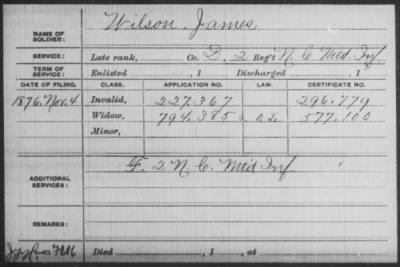 NAME OF SOLDIER: Wilson, James
SERVICE: Late rank, Co. D, 2 Reg't N.C. Mtd. Inf.
TERM OF SERVICE: Enlisted , 1 Discharged , 1
DATE OF FILING. CLASS. APPLICATION NO. LAW. CERTIFICATE NO.
1876, Nov. 4 Invalid, 227.367 296.779
Widow, 794.385 577.100
Minor,
ADDITIONAL SERVICES: F. 2 N.C. Mtd Inf
REMARKS:
Died , 1 , at